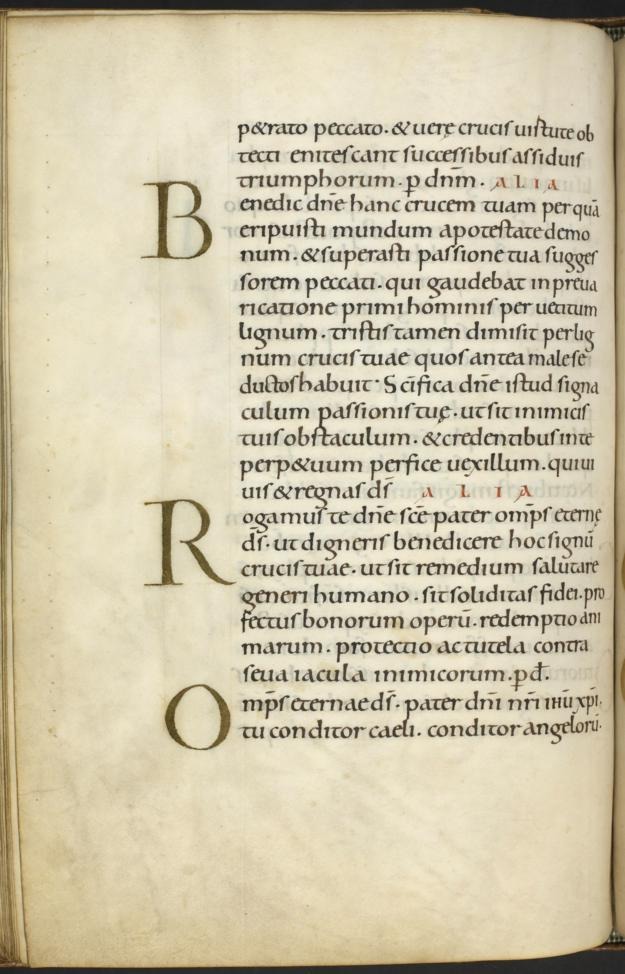 p&rato peccato. & uerę crucis uirtute ob
tecti enitescant successibus assiduis
triumphorum. p dnm. ALIA
Benedic dñe hanc crucem tuam per quā
eripuisti mundum apotestate demo
num. & superasti passione tua sugges
sorem peccati. qui gaudebat in preua
ricatione primi hominis per uetitum
lignum. tristis tamen dimisit per lig
num crucis tuae quos antea male se
ductos habuit. Scīfica dñe istud signa
culum passionis tuę. ut sit inimicis
tuis obstaculum. & credentibus in te
perp&uum perfice uexillum. qui ui
uis & regnas d̄s ALIA
Rogamus te dñe scē pater omp̄s eternę
d̄s. ut digneris benedicere hoc signū
crucis tuae. ut sit remedium salutare
generi humano. sit soliditas fidei. pro
fectus bonorum operū. redemptio ani
marum. protectio ac tutela contra
seua iacula inimicorum. p d̄.
Omp̄s eternae d̄s. pater dñi nr̄i ihū xp̄i.
tu conditor caeli. conditor angelorū.